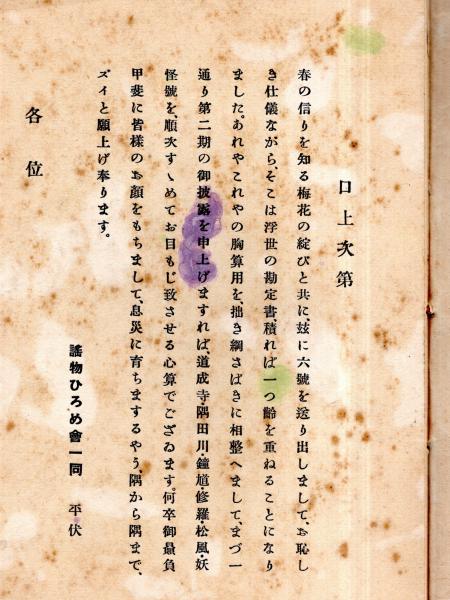 口上次第
春の信りを知る梅花の綻びと共に、玆に六號を送り出しまして、お恥し
き仕儀ながら、そこは浮世の勘定書、積れば一つ齡を重ねることになり
ました。あれやこれやの胸算用を、拙き綱さばきに相整へまして、まづ一
通り第二期の御披露を申上げますれば、道成寺・隅田川・鐘馗・修羅・松風・妖
怪號を、順次すゝめてお目もじ致させる心算でござゐます。何卒御贔負
甲斐に皆樣のお顏をもちまして、息災に育ちまするやう、隅から隅まで、
ズイと願上げ奉ります。
謠物ひろめ會一同 平伏
各位